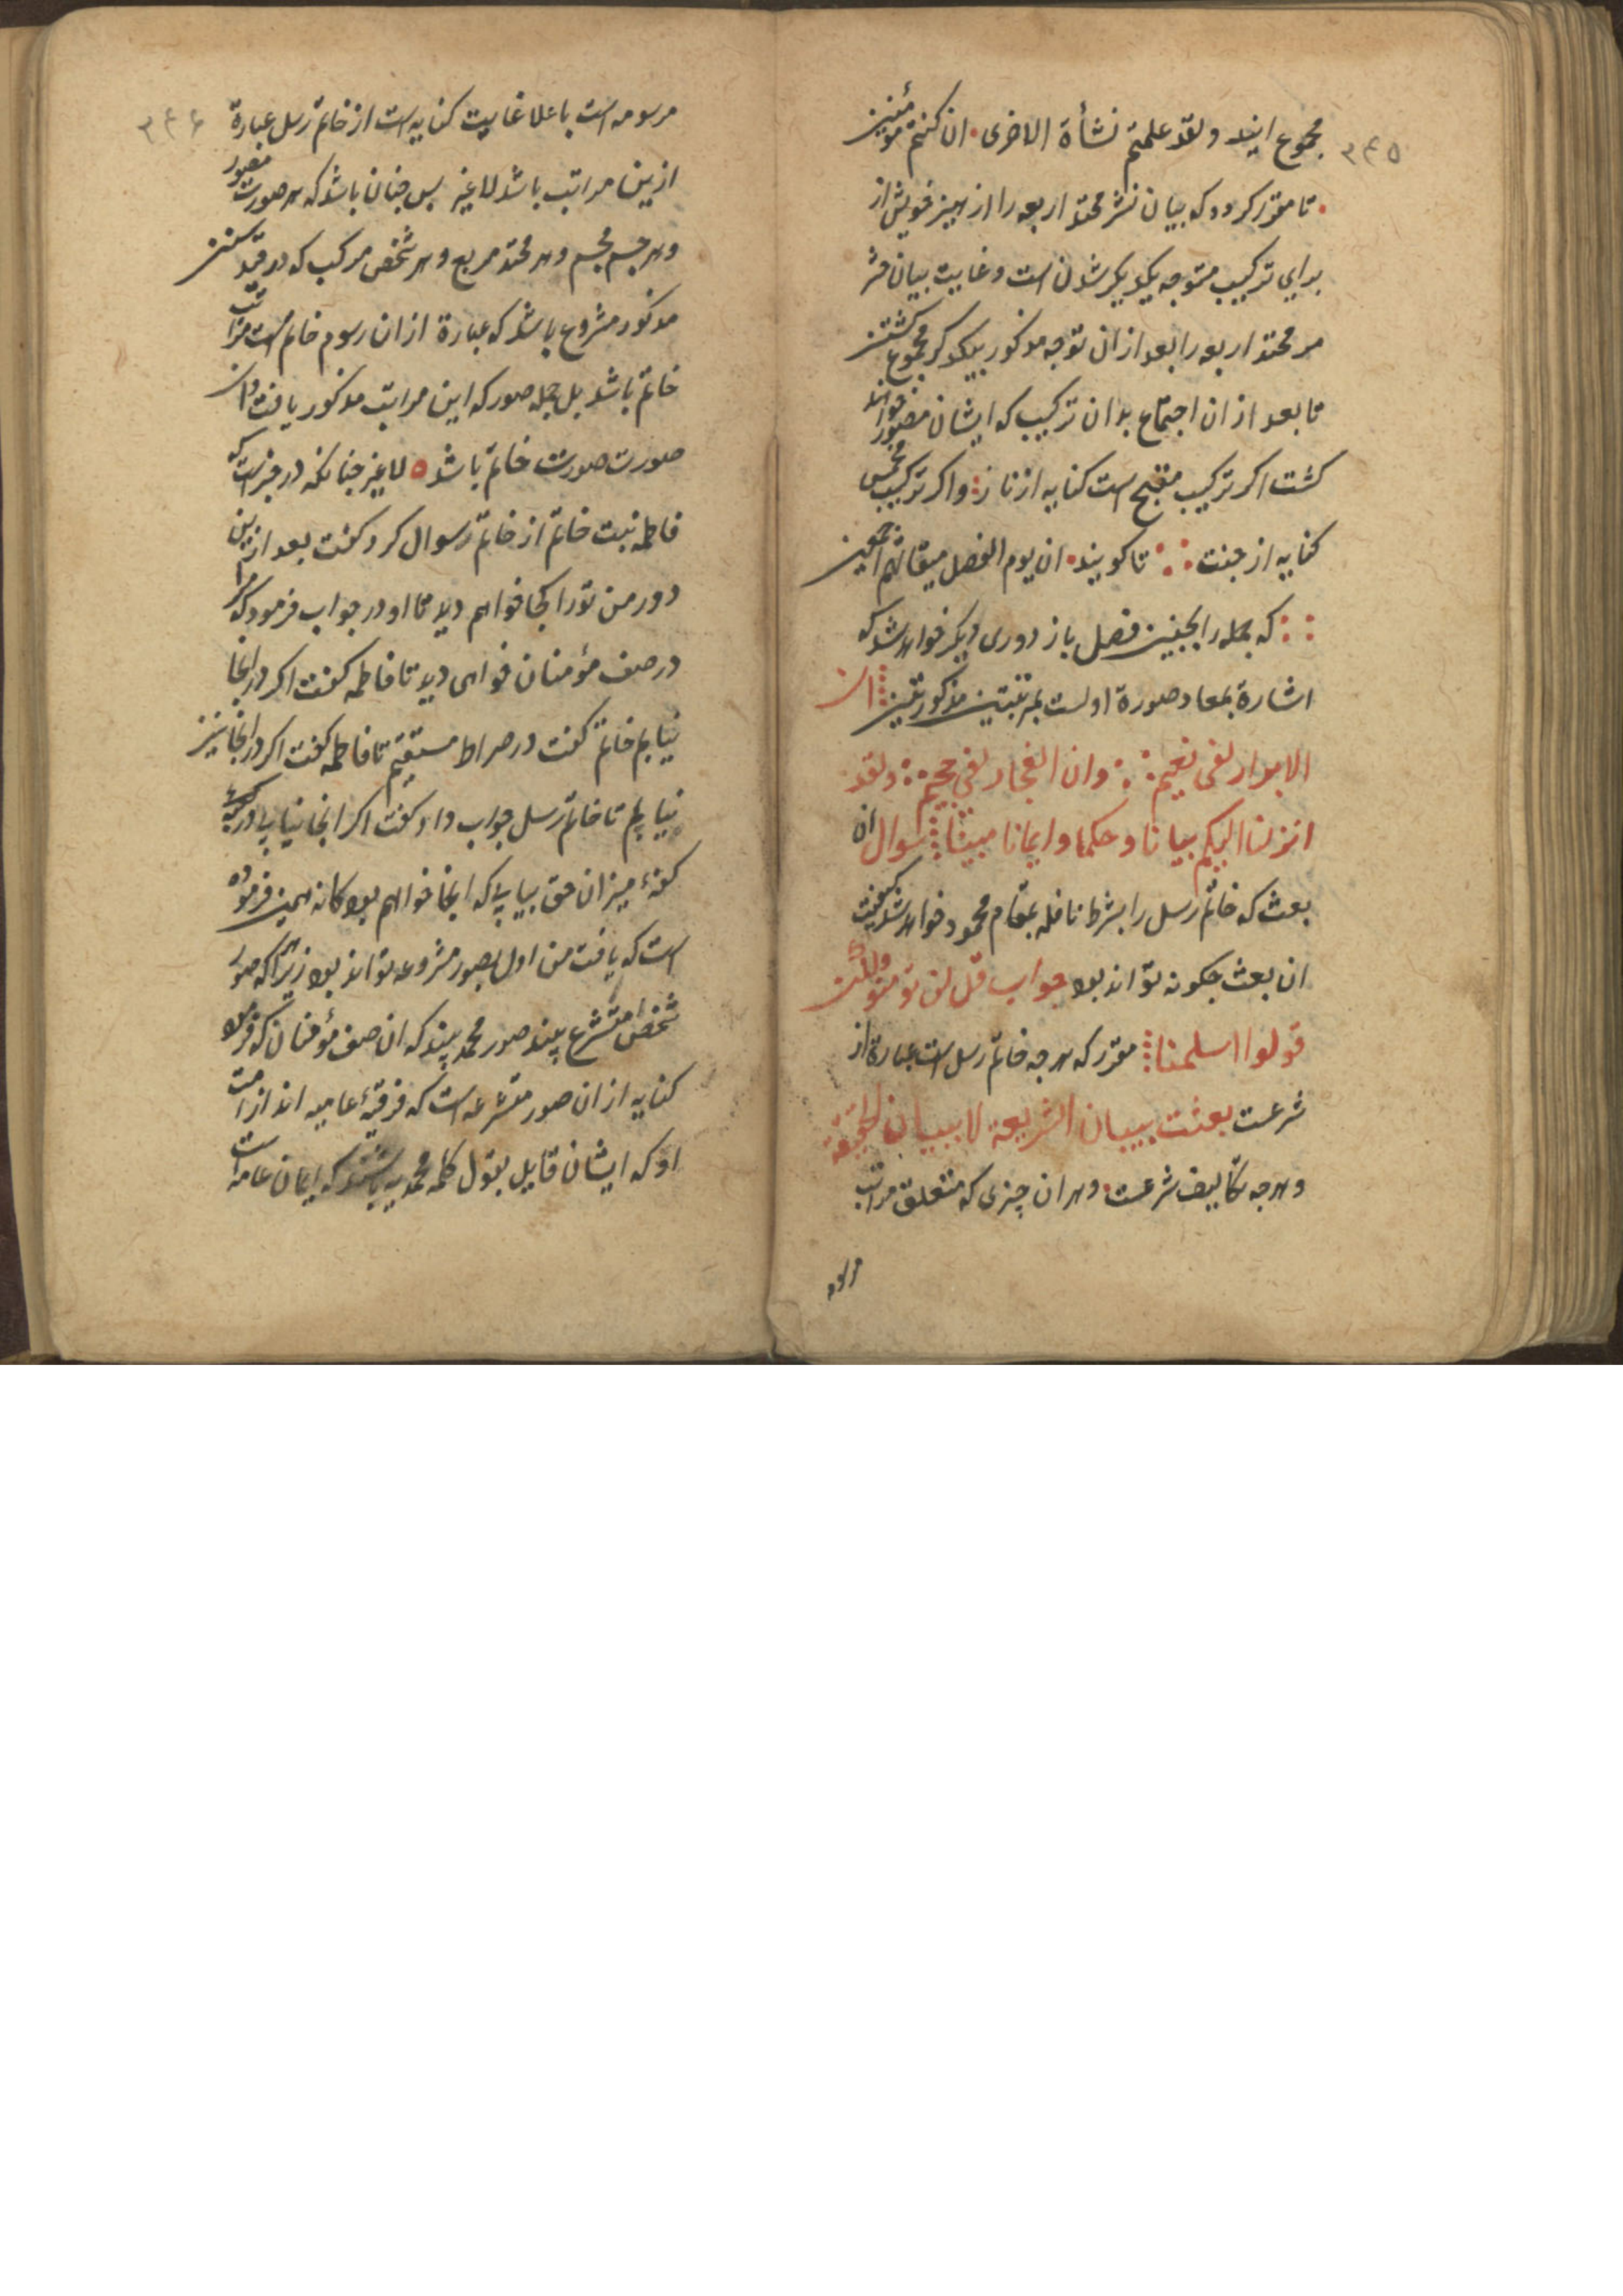 ۳۴۵
مجموع ایند ولقد علمتم نشأة الاخری ۰ ان کنتم مؤمنین
۰ تا مقرر کردد که بیان نشر محتد اربعه را از بین خویش از
برای ترکیب متوجه یکدیکر شدن است وغایت بیان
مر محتد اربعه را بعد از ان توجه مذکور بیکدکر مجموع کشتن
تا بعد از ان اجتماع بدان ترکیب که ایشان مصور خواند
کشت اکر ترکیب مقبح است کنایه از نار واکر ترکیب
کنایه از جنت تا کویند ۰ ان یوم الفصل میقاتهم اجمعین
که جمله را بجنین فصل باز دوری دیکر خواهد شد که
اشارة بمعاد وصورة اولست بمرتبتین مذکورتین ان
الابرار لفی نعیم وان الفجار لفی جحیم ولقد
انزلنا الیکم بیانا وحکما وایمانا مبینا سوال ان
بعث که خاتم رسل را بشرط نافله بمقام محمود خواهد شد کیفیت
ان بعث جکونه تواند بود جواب قل لن تؤمنوا ولکن
قولوا اسلمنا مقرر که هرجه خاتم رسل است عبارة از
شرعت بعثت ببیان الشریعه لا ببیان الحقیقه
وهرجه تکالیف شرعست وهر ان چیزی که متعلق مراتب
۳۴۶
مرسومه است باعلا غایت کنایه است از خاتم رسل عبارة
ازین مراتب باشد لاغیر بس جنان باشد که هر صورت مصور
وهر جسم مجسم وهر محتد مربع وهر شخص مرکب که در قید سنن
مذکور مشروع باشد که عبارة از ان رسوم خاتم است مراتب
خاتم باشد بل جمله صور که این مراتب مذکور یافت ان
صورت صورت خاتم باشد ۰ لاغیر جنانکه در خبر است که
فاطمه بنت خاتم از خاتم رسوال کرد کفت بعد ازین
دور من تورا کجا خواهم دید تا او در جواب فرمود که مرا
در صف مؤمنان خواهی دید تا فاطمه کفت اکر در انجا
نیابم خاتم کفت در صراط مستقیم تا فاطمه کفت اکر در انجا نیز
نیابم تا خاتم رسل جواب داد کفت اکر انجا نیابی در
کفهٔ میزان حق بیابی که انجا خواهم بود کانه همین فرموده
است که یافت من اول بصور مشروعه تواند بود زیرا که صور
شخص متشرع بیند صور محمد بیند که ان صف مؤمنان که فرمود
کنایه از ان صور متشرعه است که فرقهٔ عامیه اند از امت
او که ایشان قایل بقول کلمه محمدیه باشند که ایمان عامه است